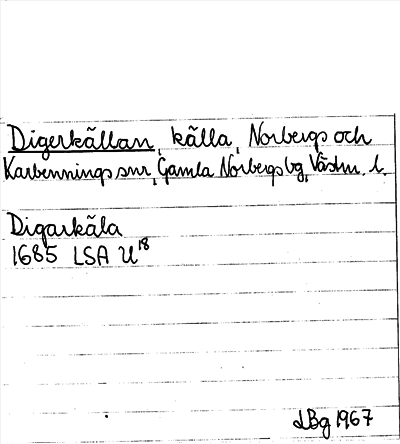 Digerkällan, källa, Norbergs och
Karbennings snr, Gamla Norbergs bg, Västm. l.
Digarkäla
1685 LSA U18
LBg 1967